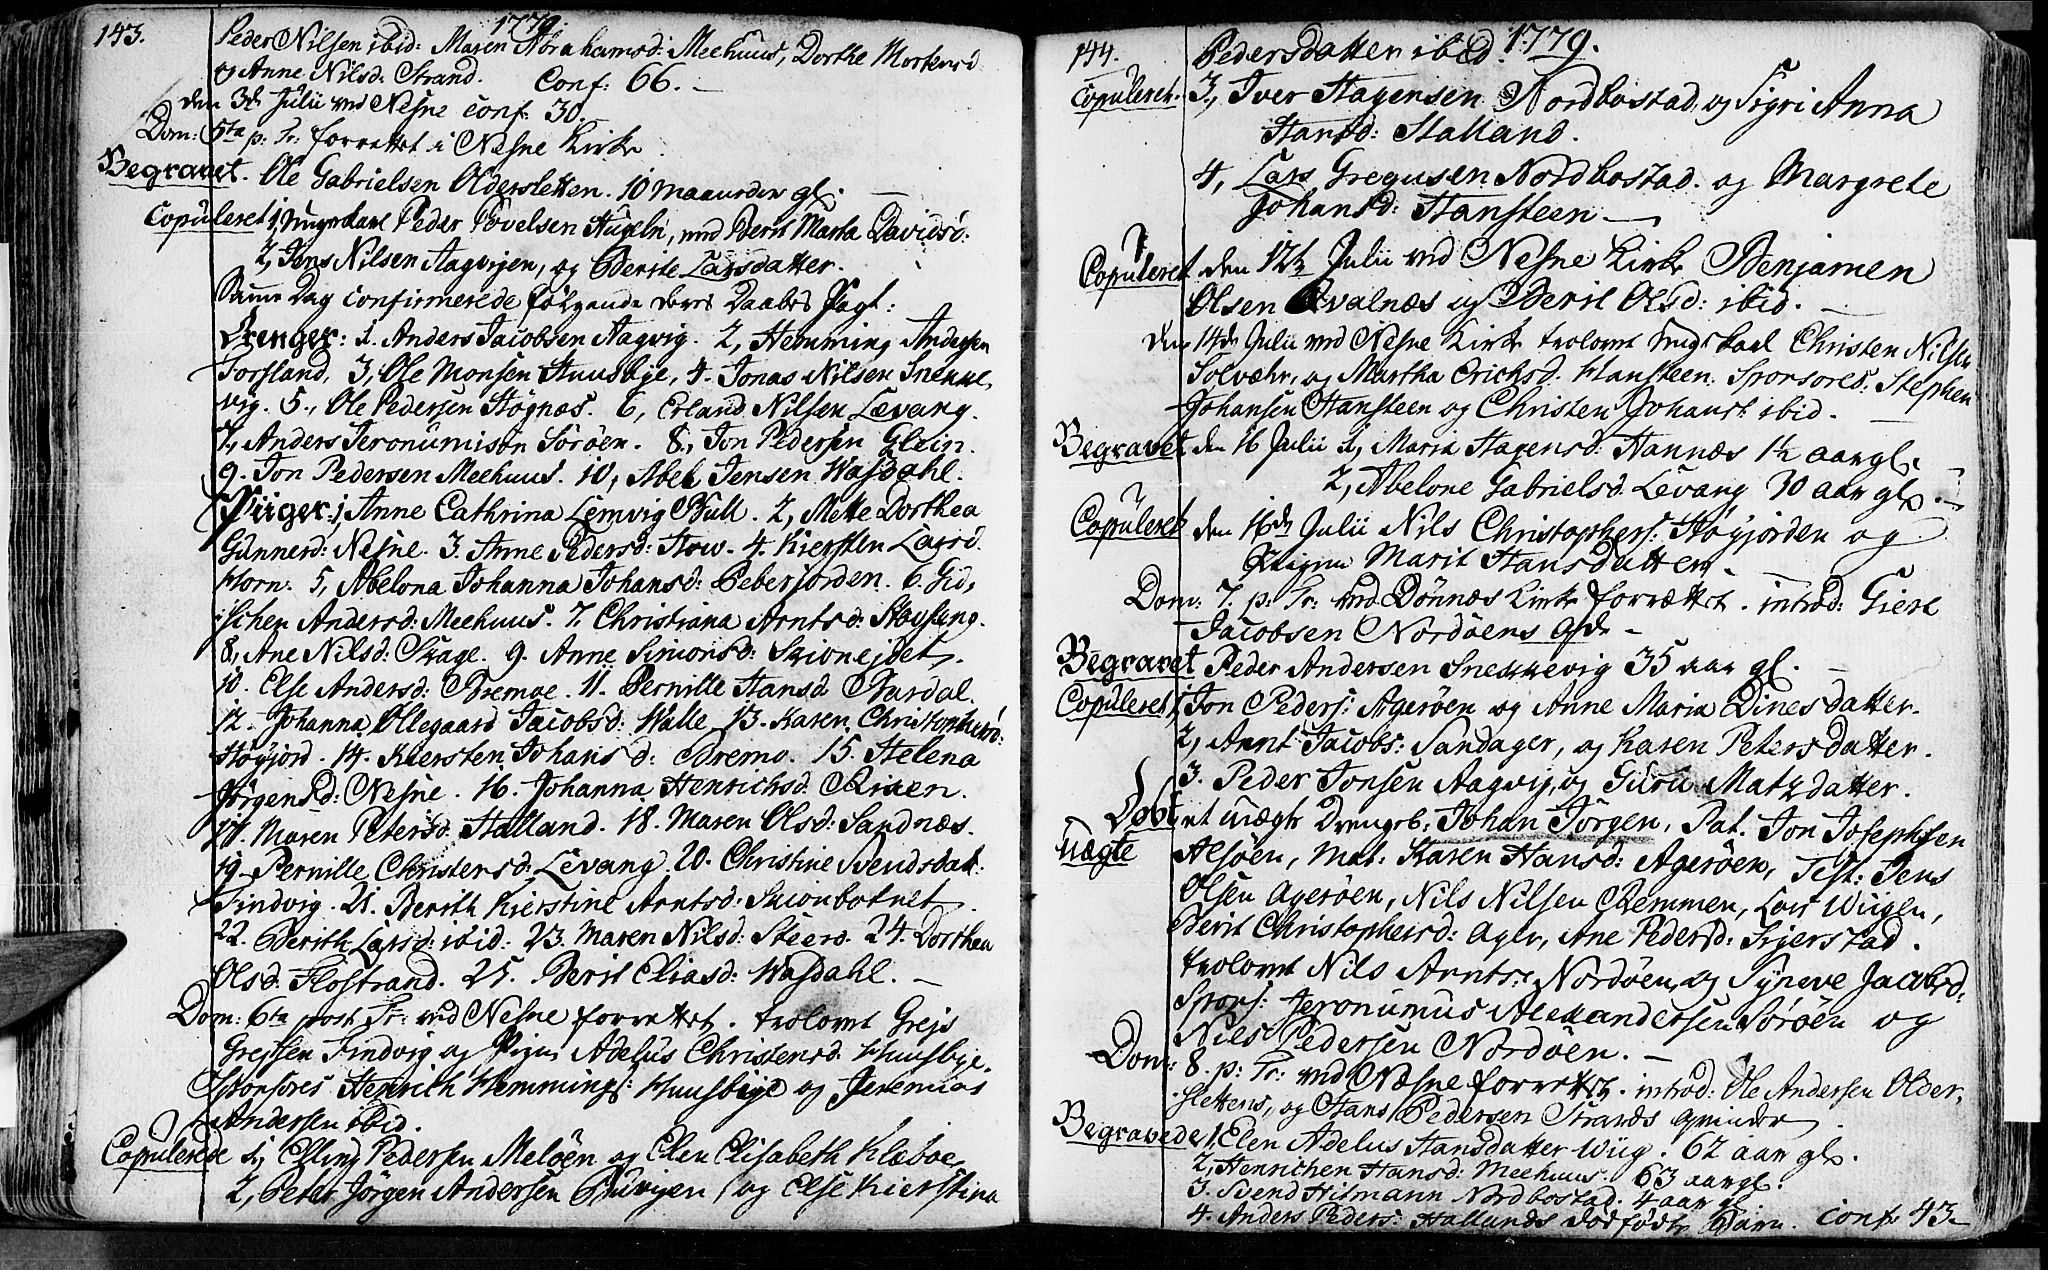 143.
1779.
Peder Nilsen ibid: Maren Abrahamsd: Meehuus, Dorthe Mortensd
og Anne Nilsd: Strand. Conf: 66. —
den 3de Julii ved Nesne conf: 30.
Dom: 5ta p: Tr: forrettet i Nesne Kirke.
Begravet. Ole Gabrielsen Oldersletten. 10 maaneder gl. —
Copuleret 1, Peder Povelsen Hugeln, med Berit Marta Davidsd:
2, Jens Nilsen Aagvigen, og Berite Larsdatter.
Samme Dag confirmerede følgende deres Daabes Pagt:
Drenger: 1. Anders Jacobsen Aagvig. 2, Hemming Andersen
Forsland, 3, Ole Monsen Huusbye, 4. Jonas Nilsen Snekke,
vig. 5., Ole Pedersen Høgnæs. 6, Erland Nilsen Levang.
7., Anders Jeronumison Sørøen. 8., Jon Pedersen Glein.
9. Jon Pedersen Meehuus. 10, Abel Jensen Wasdahl.
Piiger: 1, Anne Cathrina Lemvig Bull. 2, Mette Dorthea
Gunnersd: Nesne. 3. Anne Pedersd: How. 4. Kiersten Larsd.
Horn. 5, Abelona Johanna Johansd: Peberjorden. 6. Gid,
schen Andersd: Meehuus. 7. Christiana Arntsd:
8, Ane Nilsd: Skage. 9. Anne Simonsd: Skionejdet.
10. Else Andersd: Bremoe. 11. Pernille Hansd Bardal.
12. Johanna Ollegaard Jacobsd: Walle. 13. Karen Christophersd:
Høyjord. 14. Kiersten Johansd: Bremo. 15. Helena
Jørgensd: Nesne. 16. Johanna Henrichsd. Risen.
17. Maren Petersd. Halland. 18. Maren Olsd: Sandnæs.
19. Pernille Christensd: Levang. 20. Christine Svendsdat:
Findvig. 21. Berith Kierstine Arntsd: Skionbotnet.
22. Berith Larsd: ibid: 23. Maren Nilsd: 24. Dorthea
Olsd: Flostrand. 25. Berit Eliasd: Wasdahl. —
Dom: 6ta post Tr: ved Nesne forrettet. trolovet Grejs
Grejssen Findvig og Pigen Adelus Christensd. Huusbye.
Sponsores Henrich Hemmings: Huusbye og Jeremias
Andersen ibid.
Copulerede 1, Elling Pedersen Meløen og Elen Elisabeth Klæboe.
2, Peter Jørgen Andersen og Else Kierstina
144.
1779.
Pedersdatter ibid.
Copuleret. 3., Iver Hagensen Nordbostad og Sigri Anna
Hansd: Halland.
4, Lars Gregusen Nordbostad. og Margrete
Johansd: Hansteen —
Copuleret den 12te Julii ved Nesne Kirke Benjamen
Olsen Qvalnæs og Berit Olsd: ibid. —
Den 14de Julii ved Nesne Kirke trolovet Christen Nilsen
Solvæhr, og Martha Erichsd. Hansteen. Sponsores: Stephen
Johansen Hansteen og Christen Johans: ibid.
Begravet den 16 Julii 1, Marit Hagensd: Hannæs 1½ aar gl.
2, Abelone Gabrielsd. Levang 30 aar gl. —
Copuleret den 16de Julii Nils Christophers: Høyjorden og
Pigen Marit Hansdatter.
Dom: 7. p: Tr: ved Dønnæs Kirke forrettet. introd: Giert
Jacobsen Nordøens Qvde —
Begravet Peder Andersen Snekkevig 35 aar gl. —
Copuleret 1, Jon Peders: Agerøen og Anne Maria Dinesdatter.
2, Arnt Jacobs: Sandager, og Karen Petersdatter.
3. Peder Jonsen Aagvig, og Guru Matzdatter.
Døbt et uægte Drengeb: Johan Jørgen, Pat. Jon Josephsen
uægte Alsøen, Mat: Karen Hansd: Agerøen, Test: Jens
Olsen Agerøen, Nils Nilsen Remmen, Lars Wiigen,
Berit Christophersd: Ager, Ane Pedersd: Skjerstad.
trolovet Nils Arnts: Nordøen, og Syneve Jacobsd.
Spons: Jeronumus Alexandersen Sørøen og
Niels Pedersen Nordøen. —
Dom: 8. p: Tr: ved Nesne forrettet. introd: Ole Andersen Older,
slettens, og Hans Pedersen Strands qvinder.
Begravede 1. Elen Adelus Hansdatter Wiig. 62 aar gl.
2, Henrichen Hansd: Meehuus. 63 aar gl:
3. Svend Hitmann Nordbostad. 4 aar gl.
4. Anders Peders: Hallands dødfødte Barn. conf: 43 —